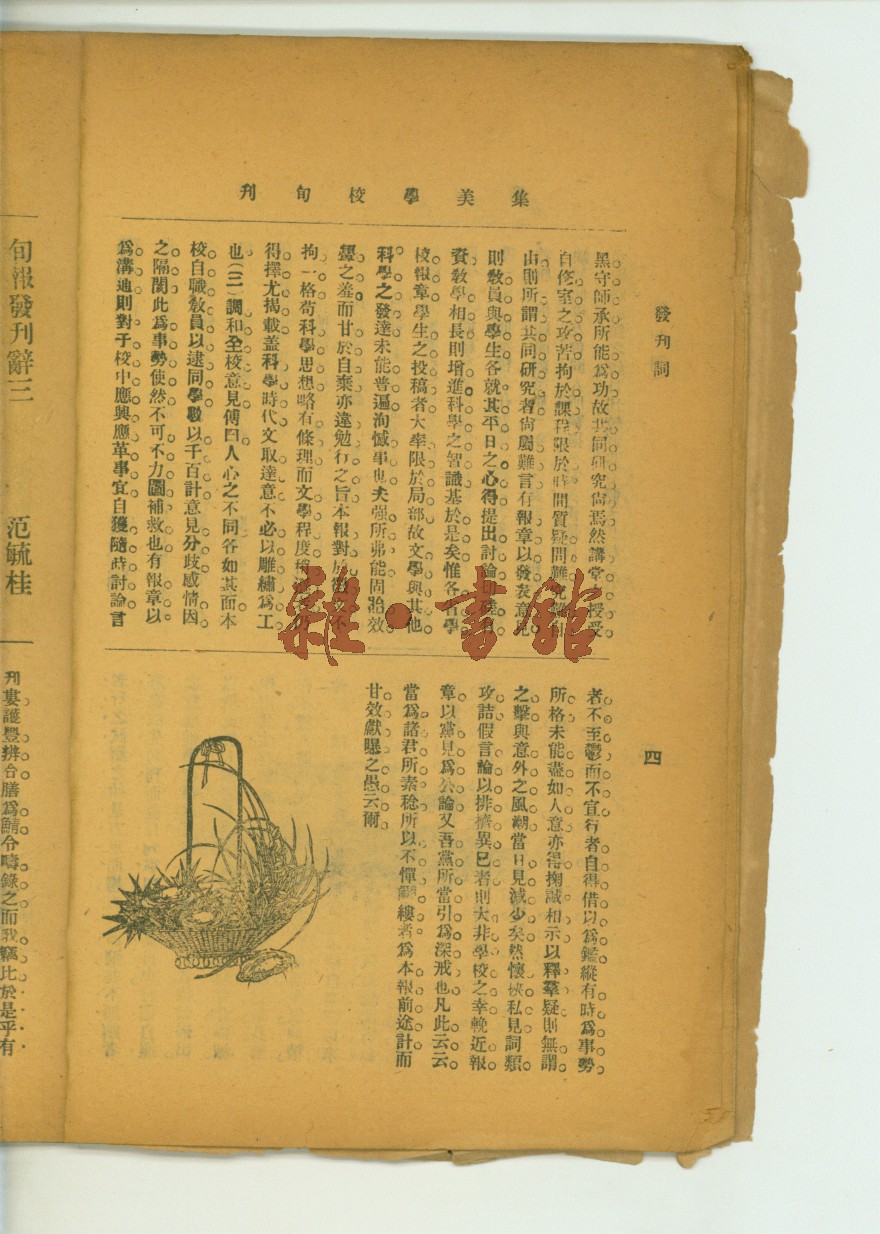 集美學校旬刊
發刊詞
四
墨守師承所能為功故共同研究尚焉然講堂之授受
自修室之攻苦拘於課程限於時間質疑問難
由則所謂共同研究者尚屬難言有報章以發表意見
則教員與學生各就其平日之心得提出討論
資教學相長則增進科學之智識基於是矣惟各省學
校報章學生之投稿者大率限於局部故文學與其他
科學之發達未能普遍洵憾事也夫强所弗能固貽效
顰之羞而甘於自棄亦違勉行之旨本報對於徵文不
拘一格苟科學思想略有條理而文學程度
得擇尤揭載盖科學時代文取達意不必以雕繡為工
也(二)調和全校意見傅曰人心之不同各如其面本
校自職教員以逮同學數以千百計意見分歧感情因
之隔閡此為事勢使然不可不力圖補救也有報章以
為溝通則對于校中應興應革事宜自獲隨時討論言
者不至鬱而不宣行者自得借以為鑑縱有時為事勢
所格未能盡如人意亦得掬誠相示以釋羣疑則無謂
之擊與意外之風潮當日見減少矣然懷挾私見詞類
攻詰假言論以排擠異巳者則大非學校之幸輓近報
章以黨見為公論又吾黨所當引為深戒也凡此云云
當為諸君所素稔所以不憚覼縷者為本報前途計而
甘效獻曝之愚云爾
旬報發刊辭三
范毓桂
刊婁護豐辨合膳為鯖今疇錄之而我竊比於是乎有
雜·書館